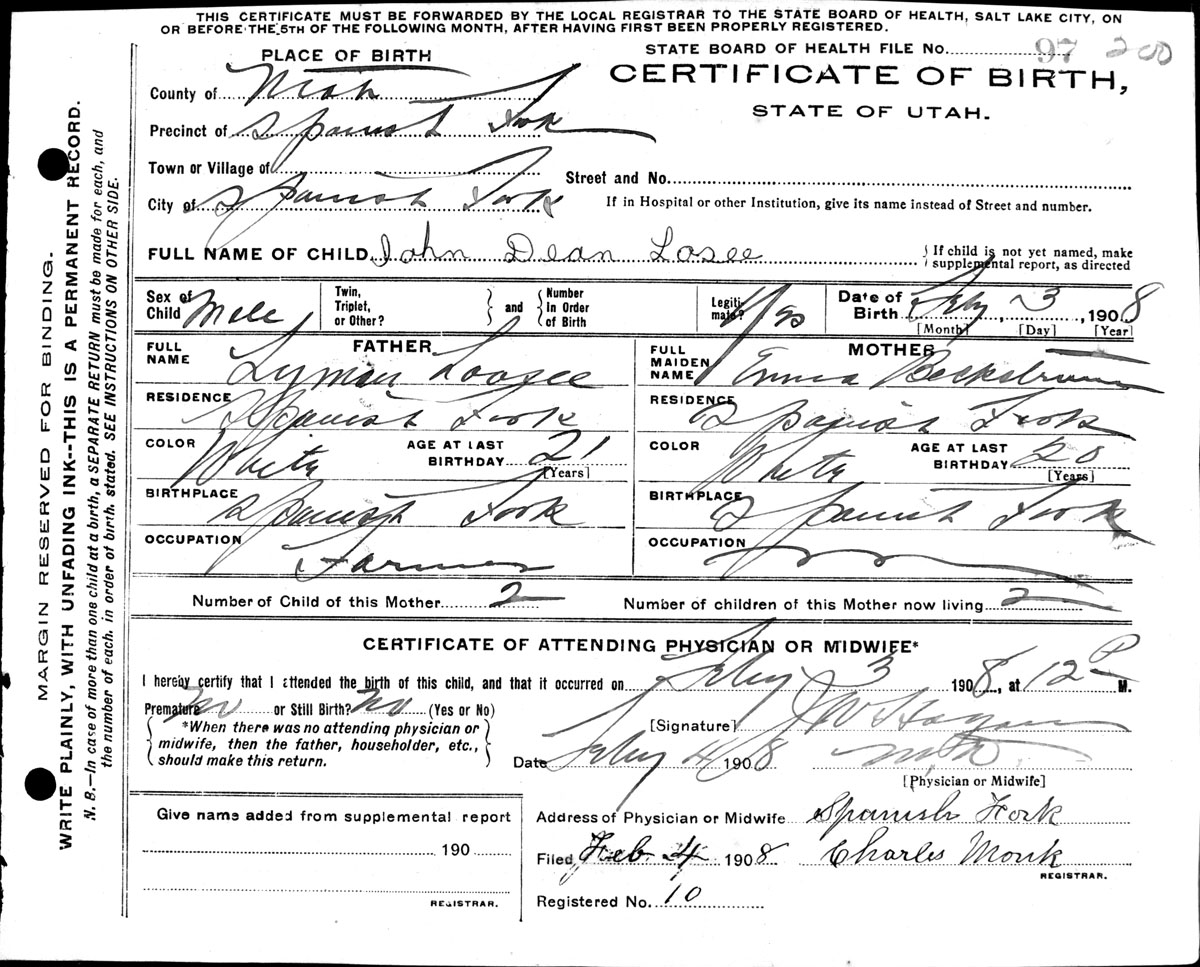 THIS CERTIFICATE MUST BE FORWARDED BY THE LOCAL REGISTRAR TO THE STATE BOARD OF HEALTH, SALT LAKE CITY, ON
OR BEFORE THE 5TH OF THE FOLLOWING MONTH, AFTER HAVING FIRST BEEN PROPERLY REGISTERED.
PLACE OF BIRTH
STATE BOARD OF HEALTH FILE NO. 97 200
County of Utah
CERTIFICATE OF BIRTH,
STATE OF UTAH.
Precinct of Spanish Fork
Town or Village of
Street and No.
City of Spanish Fork
If in Hospital or other Institution, give its name instead of Street and number.
FULL NAME OF CHILD John Dean Losee
If child is not yet named, make
supplemental report, as directed
Sex of Child Male
Twin, Triplet, or Other?
and
Number In Order of Birth
Legitimate? Yes
Date of Birth Feby 3, 1908
[Month] [Day] [Year]
FATHER
FULL NAME Lyman Loosee
RESIDENCE Spanish Fork
COLOR White
AGE AT LAST BIRTHDAY 21
[Years]
BIRTHPLACE Spanish Fork
OCCUPATION Farmer
MOTHER
FULL MAIDEN NAME Emma Beckstrum
RESIDENCE Spanish Fork
COLOR White
AGE AT LAST BIRTHDAY 20
[Years]
BIRTHPLACE Spanish Fork
OCCUPATION
Number of Child of this Mother 2
Number of children of this Mother now living 2
CERTIFICATE OF ATTENDING PHYSICIAN OR MIDWIFE*
I hereby certify that I attended the birth of this child, and that it occurred on Feby 3 1908, at 12 P M.
Premature no or Still Birth? no (Yes or No)
*When there was no attending physician or
midwife, then the father, householder, etc.,
should make this return.
[Signature] J W Hagan
Date Feby 4 1908
[Physician or Midwife]
Give name added from supplemental report
190
REGISTRAR.
Address of Physician or Midwife Spanish Fork
Filed Feb. 4 1908 Charles Monk
REGISTRAR.
Registered No. 10
MARGIN RESERVED FOR BINDING.
WRITE PLAINLY, WITH UNFADING INK--THIS IS A PERMANENT RECORD.
N. B.—In case of more than one child at a birth, a SEPARATE RETURN must be made for each, and
the number of each, in order of birth, stated. SEE INSTRUCTIONS ON OTHER SIDE.